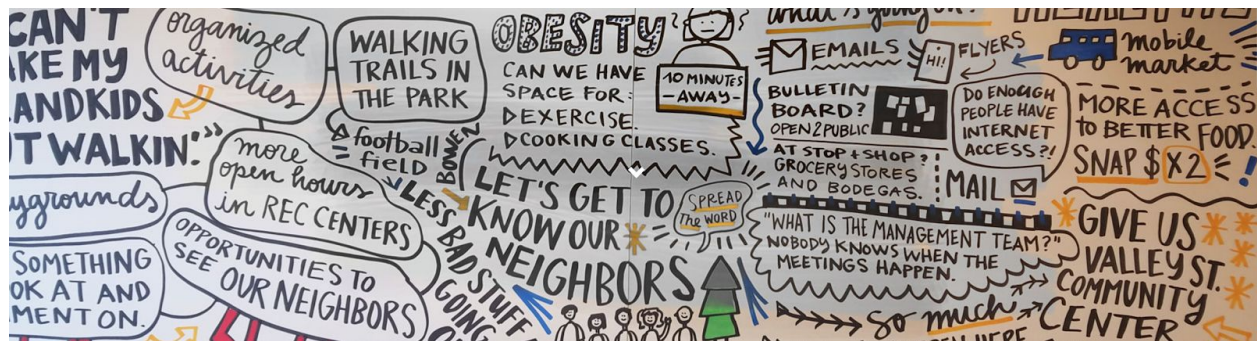 CAN'T
MY
WALKIN'."
organized
activities
WALKING
TRAILS IN
THE PARK
football
field
more
open hours
in REC CENTERS
OPPORTUNITIES TO
SEE OUR NEIGHBORS
SOMETHING
AT AND
ON.
LESS
BAD STUFF
GOING
OBESITY
CAN WE HAVE
SPACE FOR:
▷EXERCISE.
▷COOKING CLASSES.
10 MINUTES
-AWAY-
LET'S GET TO
KNOW OUR
NEIGHBORS
SPREAD
The WORD
what's going on?
EMAILS
HI!
FLYERS
BULLETIN
BOARD?
OPEN 2 PUBLIC
AT STOP + SHOP?
GROCERY STORES
AND BODEGAS.
MAIL
DO ENOUGH
PEOPLE HAVE
INTERNET
ACCESS?!
"WHAT IS THE MANAGEMENT TEAM?"
NOBODY KNOWS WHEN THE
MEETINGS HAPPEN.
mobile
market
MORE ACCESS
to BETTER FOOD.
SNAP $ X2
GIVE US
VALLEY ST.
COMMUNITY
CENTER
so much
HERE